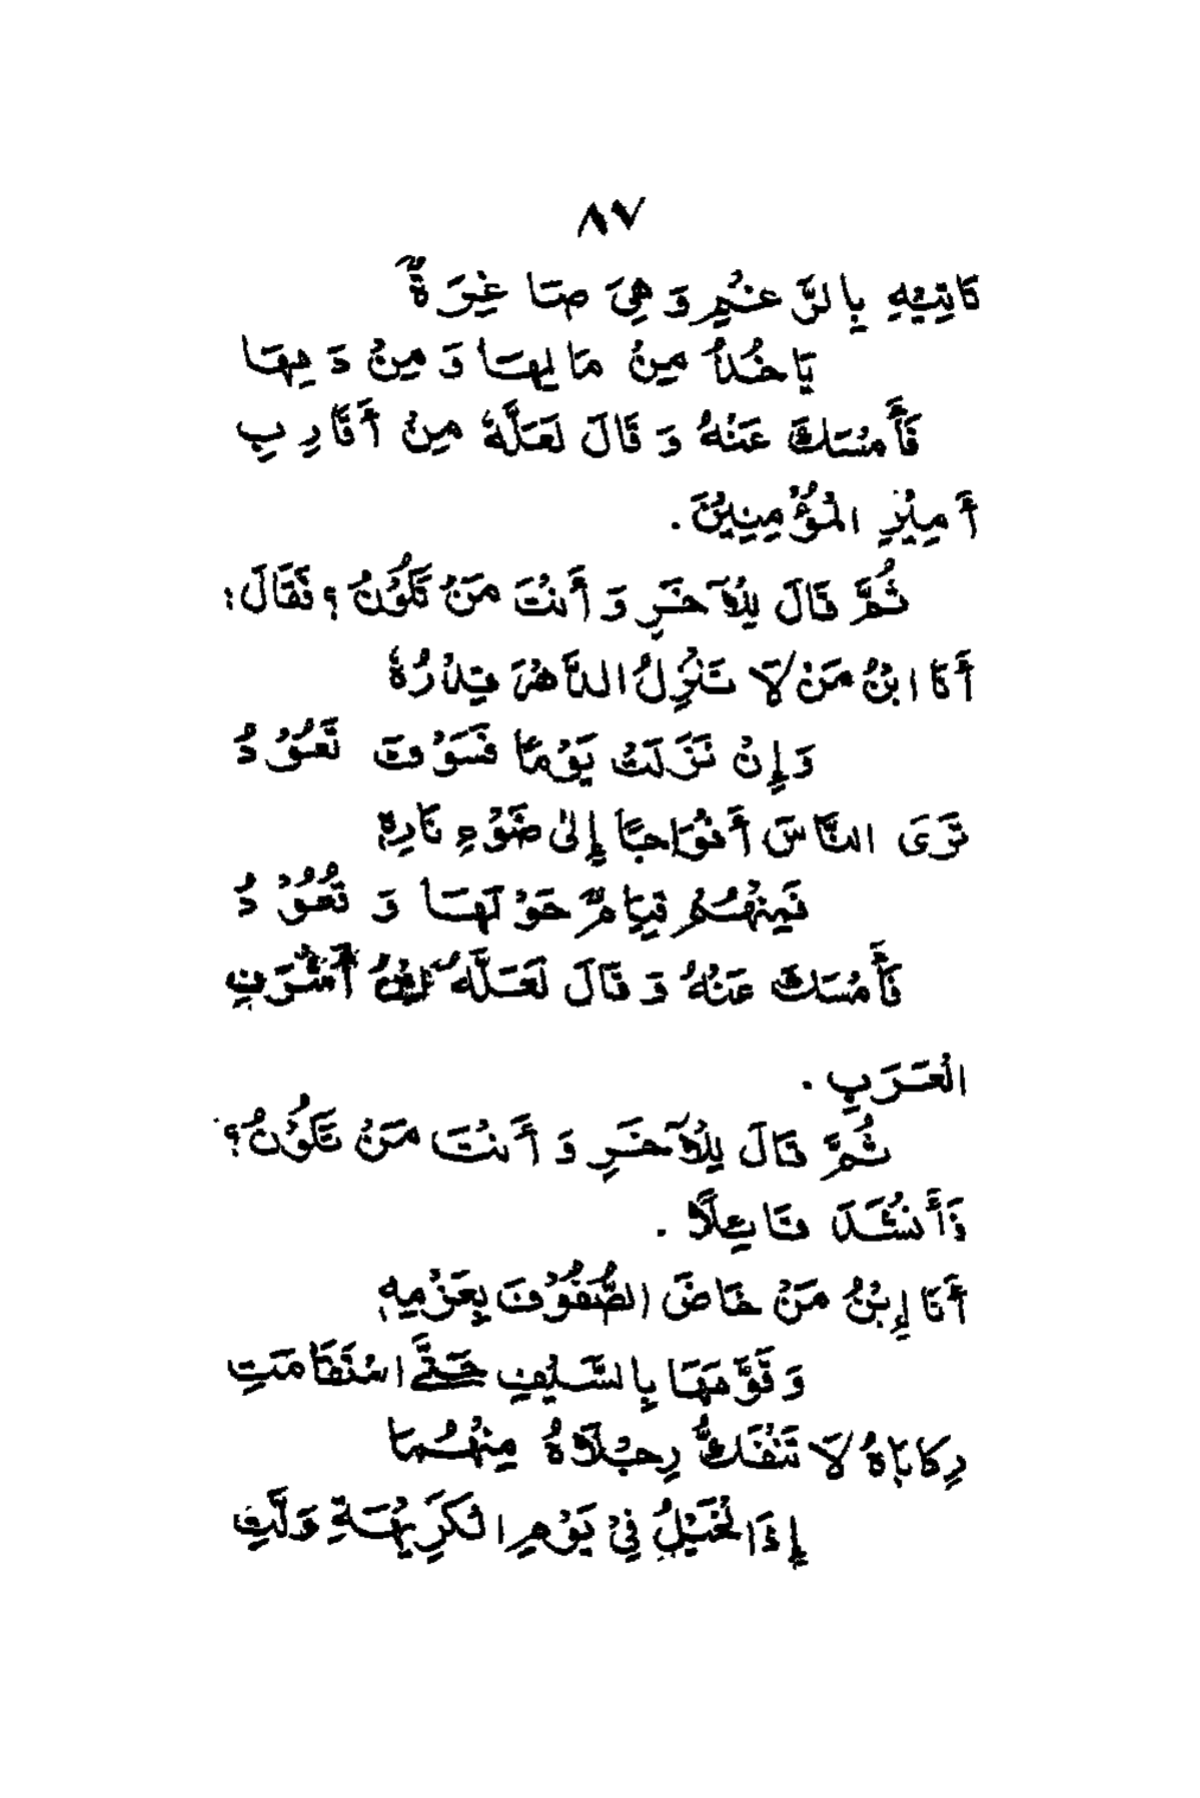 ٨٧
تَاتِيْهِ بِالرَّغْمِ وَهِيَ صَاغِرَةٌ
يَاخُذُ مِنْ مَالِهَا وَمِنْ دَمِهَا
فَأَمْسَكَ عَنْهُ وَقَالَ لَعَلَّهُ مِنْ أَقَارِبِ
أَمِيْرِ الْمُؤْمِنِيْنَ .
ثُمَّ قَالَ لِلْآخَرِ وَأَنْتَ مَنْ تَكُوْنُ ؟ فَقَالَ :
أَنَا ابْنُ مَنْ لَا تَنْزِلُ الدَّهْرَ قِدْرُهُ
وَإِنْ نَزَلَتْ يَوْمًا فَسَوْفَ تَعُوْدُ
تَرَى النَّاسَ أَفْوَاجًا إِلَى ضَوْءِ نَارِهِ
فَمِنْهُمْ قِيَامٌ حَوْلَهَا وَقُعُوْدُ
فَأَمْسَكَ عَنْهُ وَقَالَ لَعَلَّهُ ابْنُ أَشْرَفِ
الْعَرَبِ .
ثُمَّ قَالَ لِلْآخَرِ وَأَنْتَ مَنْ تَكُوْنُ ؟
فَأَنْشَدَ قَائِلًا .
أَنَا إِبْنُ مَنْ خَاضَ الصُّفُوْفَ بِعَزْمِهِ
وَقَوَّمَهَا بِالسَّيْفِ حَتَّى اسْتَقَامَتِ
رِكَابَاهُ لَا تَنْفَكُّ رِجْلَاهُ مِنْهُمَا
إِذَا لْخَيْلُ فِيْ يَوْمِ الْكَرِيْهَةِ وَلَّتِ